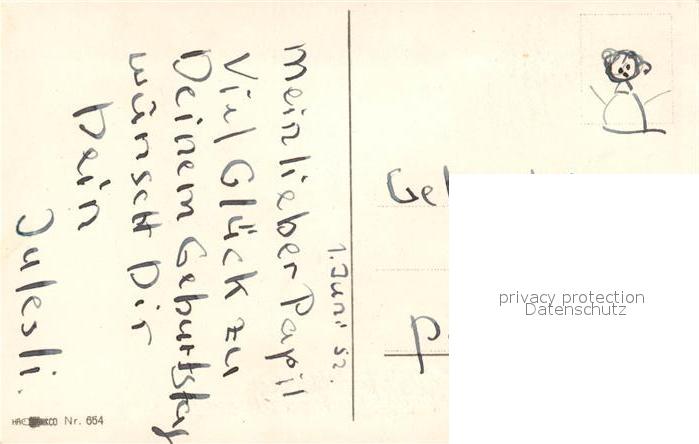 1. Juni 52.
Mein lieber Papi!
Viel Glück zu
Deinem Geburtstag
wünscht Dir
Dein
Julesli.
Gel
P
privacy protection
Datenschutz
Nr. 654